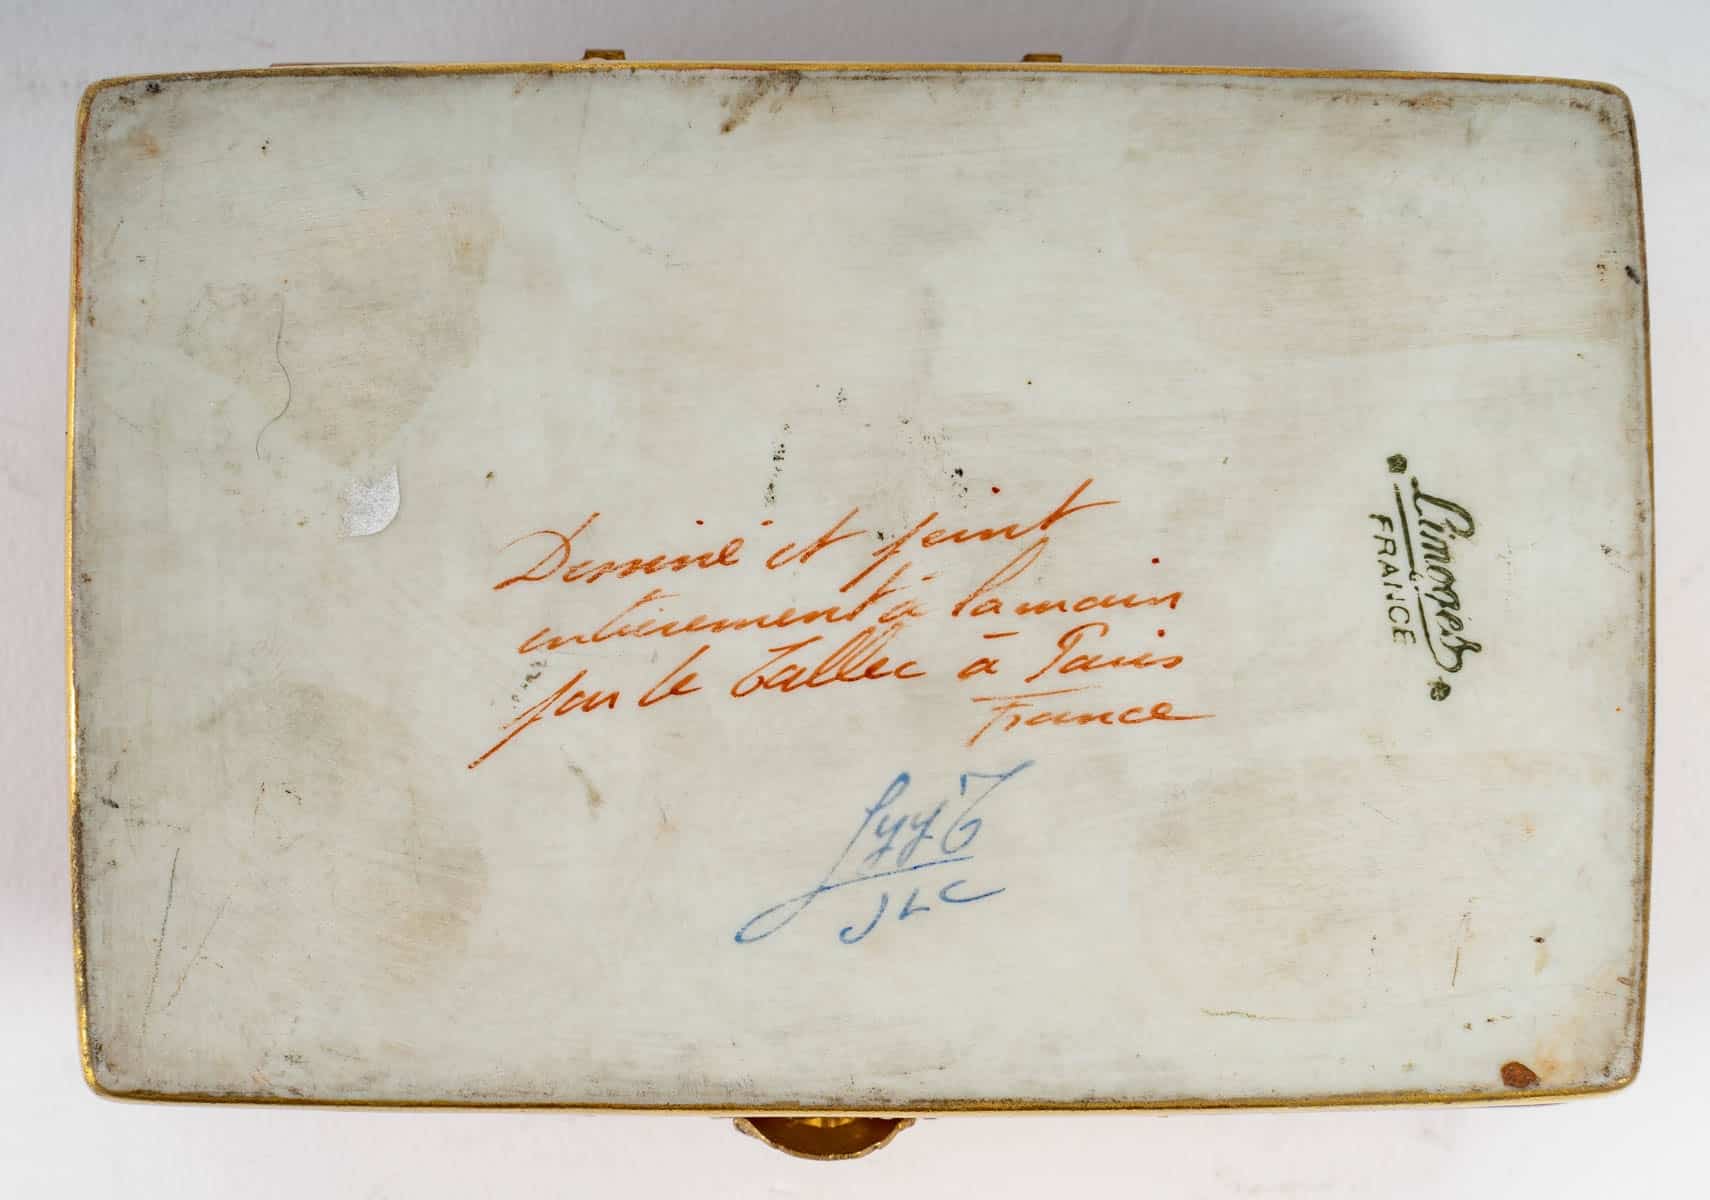 Dessiné et peint
entièrement à la main
par le Tallec à Paris
France
JLC
Limoges
FRANCE